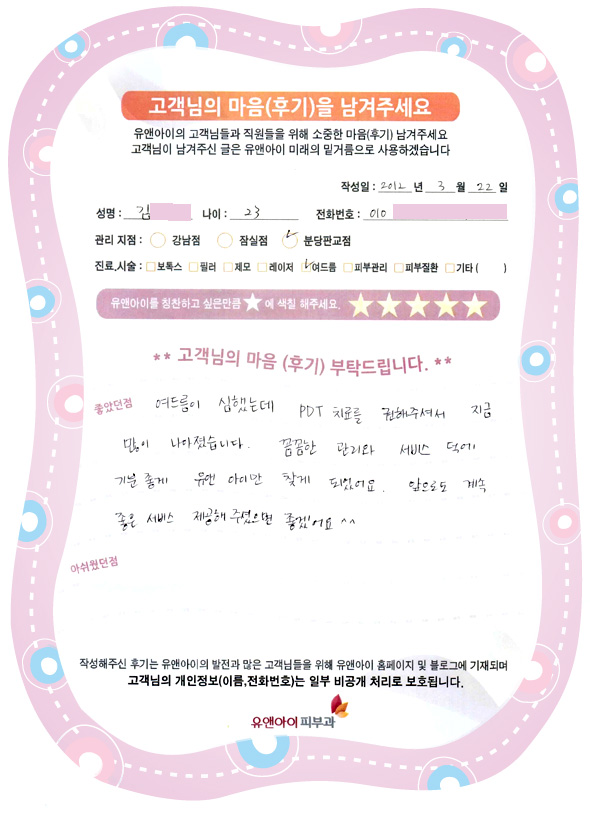 고객님의 마음(후기)을 남겨주세요
유앤아이의 고객님들과 직원들을 위해 소중한 마음(후기) 남겨주세요
고객님이 남겨주신 글은 유앤아이 미래의 밑거름으로 사용하겠습니다
작성일 : 2012 년 3 월 22 일
성명 : 김 나이 : 23 전화번호 : 010
관리 지점 : 강남점 잠실점 분당판교점
진료,시술 : 보톡스 필러 제모 레이저 여드름 피부관리 피부질환 기타 ( )
유앤아이를 칭찬하고 싶은만큼 ★ 에 색칠 해주세요. ★★★★★
** 고객님의 마음 (후기) 부탁드립니다. **
좋았던점 여드름이 심했는데 PDT 치료를 권해주셔서 지금
많이 나아졌습니다. 꼼꼼한 관리와 서비스 덕에
기분 좋게 유앤 아이만 찾게 되었어요. 앞으로도 계속
좋은 서비스 제공해 주셨으면 좋겠어요 ^^
아쉬웠던점
작성해주신 후기는 유앤아이의 발전과 많은 고객님들을 위해 유앤아이 홈페이지 및 블로그에 기재되며
고객님의 개인정보(이름,전화번호)는 일부 비공개 처리로 보호됩니다.
유앤아이피부과